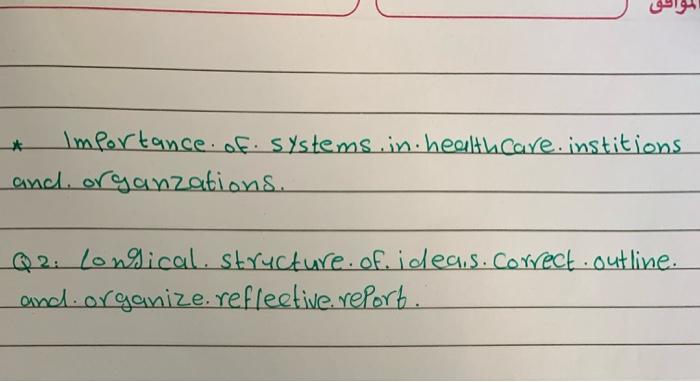 الموافق
* Importance. of. systems. in. healthcare. institions
and. organzations.
Q2: Longical. structure. of. ideas. correct. outline.
and. organize. reflective. report.